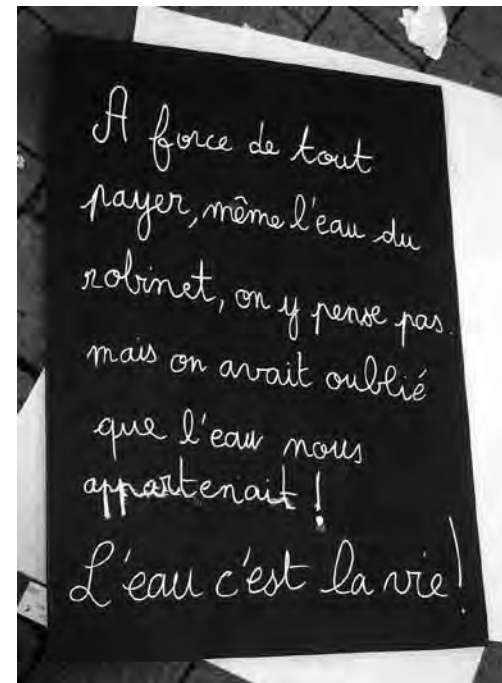 A force de tout
payer, même l'eau du
robinet, on y pense pas.
mais on avait oublié
que l'eau nous
appartenait !
L'eau c'est la vie !